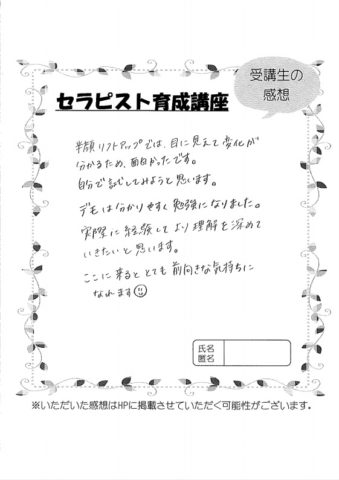 受講生の
感想
セラピスト育成講座
半顔リフトアップでは、目に見えて変化が
分かるため、面白かったです。
自分で試してみようと思います。
デモは分かりやすく勉強になりました。
実際に経験してより理解を深めて
いきたいと思います。
ここに来るととても前向きな気持ちに
なれます☺
氏名
匿名
※いただいた感想はHPに掲載させていただく可能性がございます。